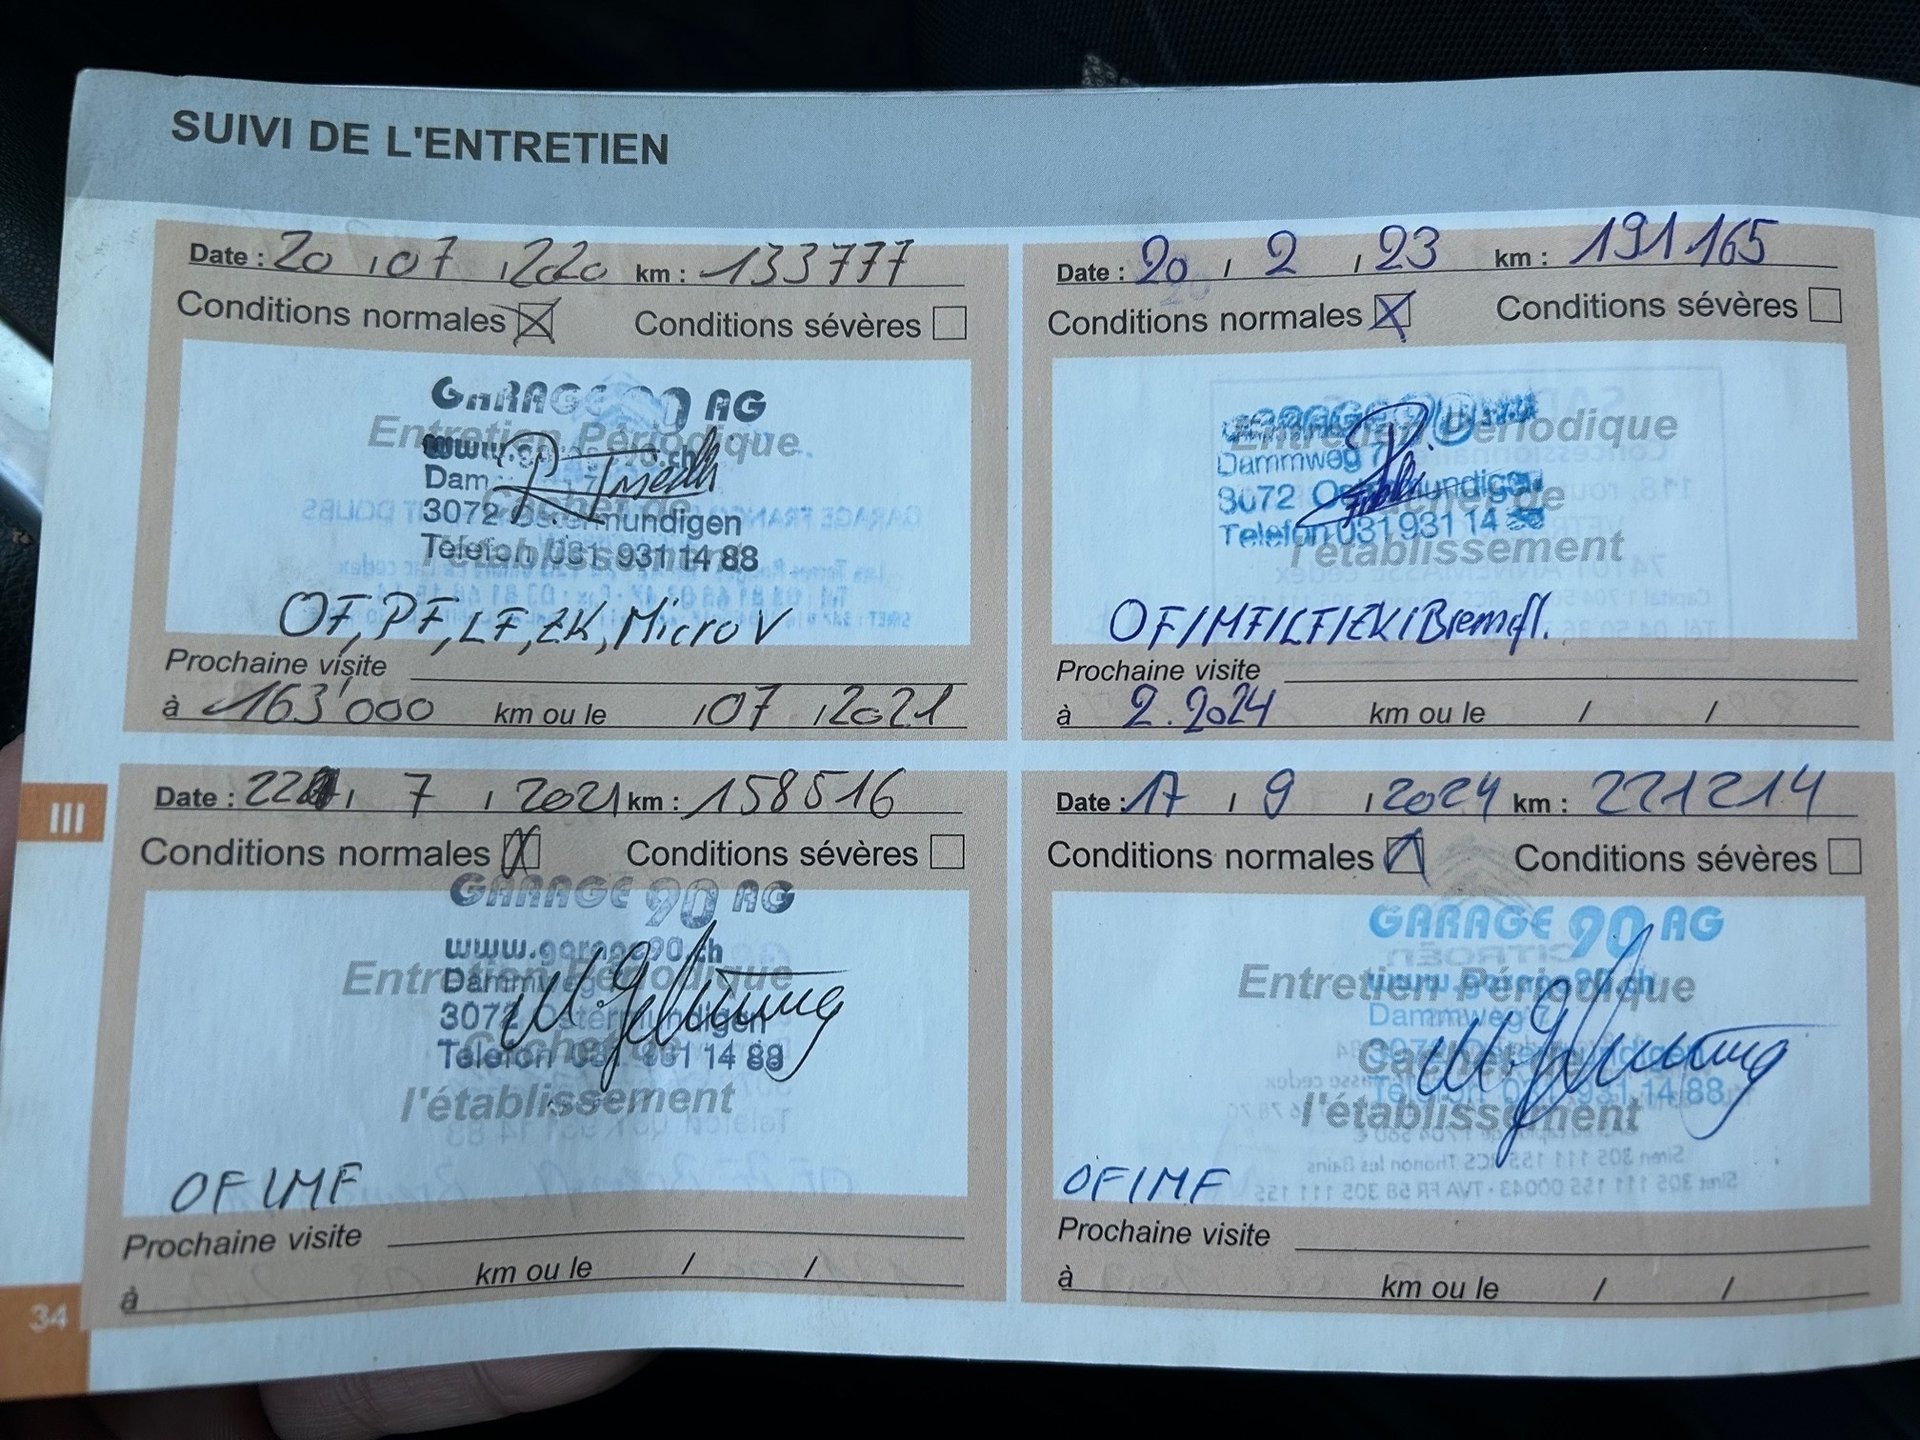 SUIVI DE L'ENTRETIEN
Date : 20 / 07 / 2020 km : 133777
Conditions normales Conditions sévères
GARAGE 90 AG
Entretien Périodique
3072 Ostermundigen
l'établissement
Telefon 031 931 14 88
OF, PF, LF, ZK, Micro V
Prochaine visite
à 163'000 km ou le / 07 / 2021
Date : 20 / 2 / 23 km : 191165
Conditions normales Conditions sévères
GARAGE 90
Entretien Périodique
Dammweg 7
3072 Ostermundigen
Telefon 031 931 14
l'établissement
OF/MF/LF/ZK/Bremfl.
Prochaine visite
à 2.2024 km ou le / /
III
Date : 22 / 7 / 2021 km : 158516
Conditions normales Conditions sévères
GARAGE 90 AG
www.garage90.ch
Entretien Périodique
Dammweg
3072 Ostermundigen
Cachet de
Telefon 031 931 14 88
l'établissement
OF/MF
Prochaine visite
à km ou le / /
Date : 17 / 9 / 2024 km : 221214
Conditions normales Conditions sévères
GARAGE 90 AG
www.garage90.ch
Entretien Périodique
Dammweg 7
3072 Ostermundigen
Cachet de
Telefon 031 931 14 88
l'établissement
OF/MF
Prochaine visite
à km ou le / /
34